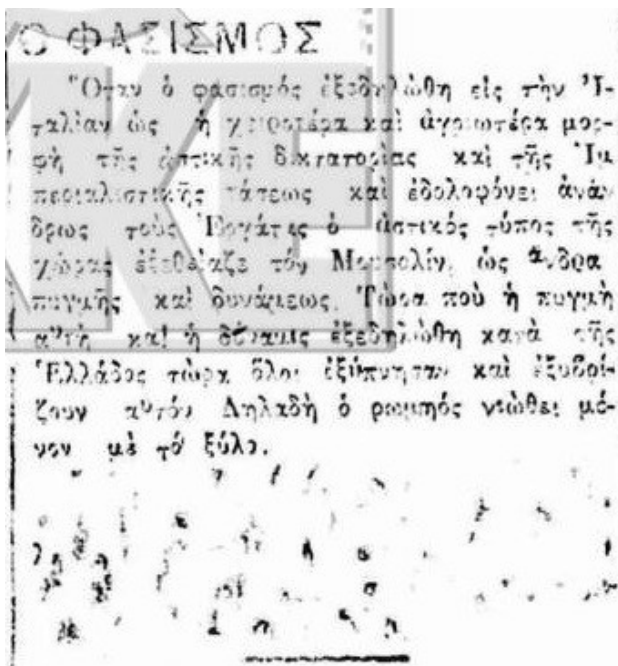 Ο ΦΑΣΙΣΜΟΣ
Ὅταν ὁ φασισμός ἐξεδηλώθη εἰς τὴν Ἰ-
ταλίαν ὡς ἡ χειροτέρα καὶ ἀγριωτέρα μορ-
φὴ τῆς ἀστικῆς δικτατορίας καὶ τῆς Ἰμ
περιαλιστικῆς τάσεως καὶ ἐδολοφόνει ἀνάν
δρως τοὺς Ἐργάτες ὁ ἀστικός τύπος τῆς
χώρας ἐξεθείαζε τόν Μουσολίνι ὡς ἄνδρα
πυγμῆς καὶ δυνάμεως. Τώρα ποὺ ἡ πυγμὴ
αὐτὴ καὶ ἡ δύναμις ἐξεδηλώθη κατὰ τῆς
Ἑλλάδος τώρα ὅλοι ἐξύπνησαν καὶ ἐξυβρί-
ζουν αὐτόν Δηλαδὴ ὁ ρωμηός νιώθει μό-
νον μὲ τό ξύλο.
ΚΕ